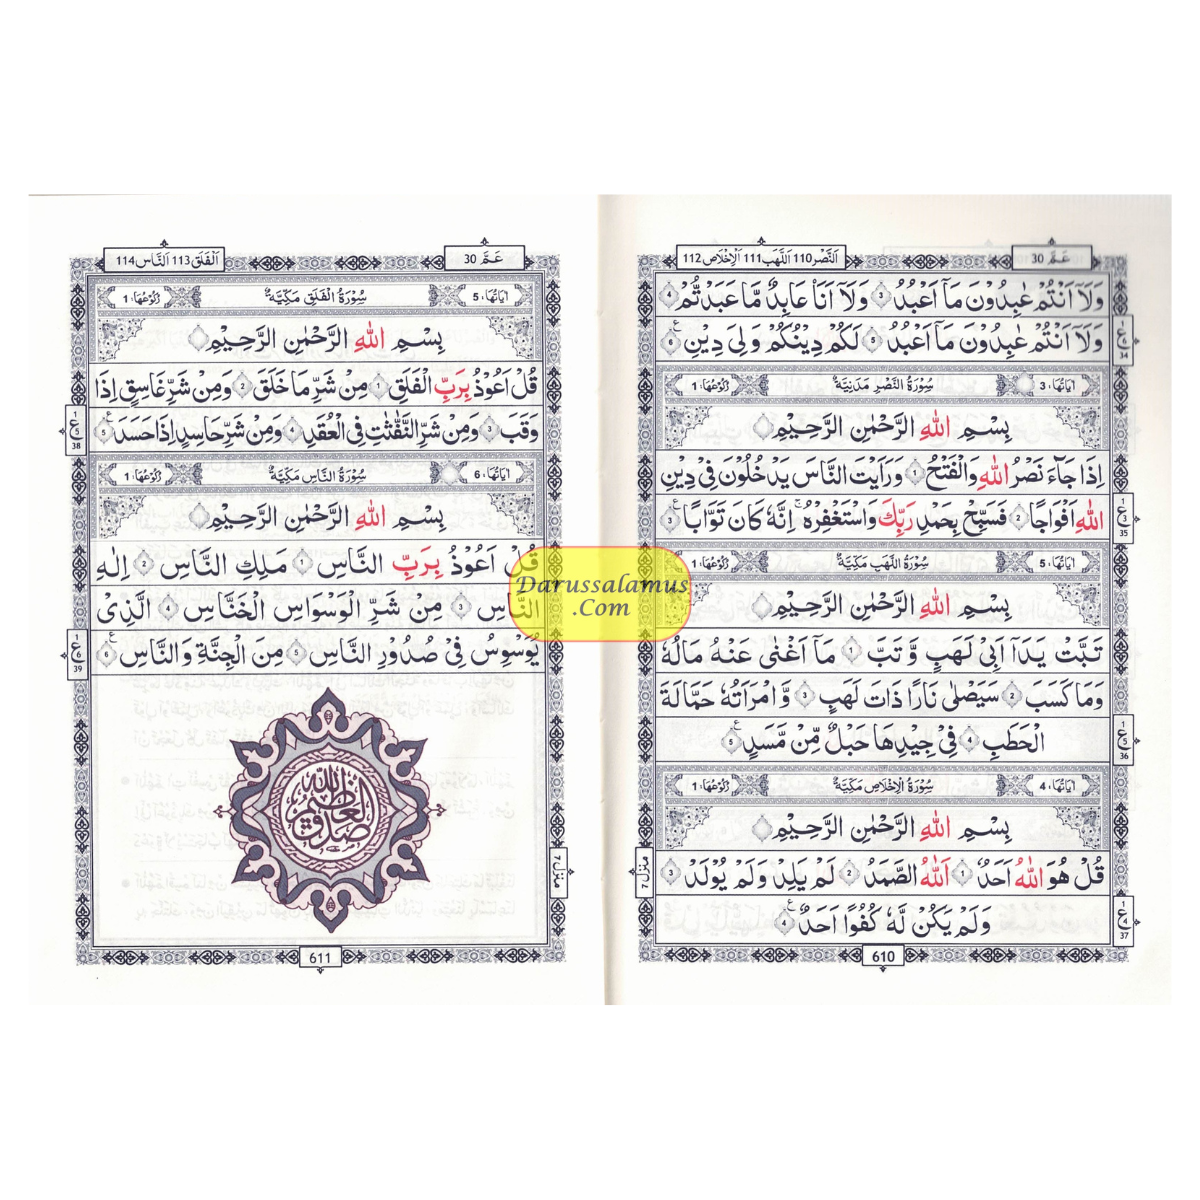 اَلنَّصْر 110 اَللَّهَب 111 اَلْاِخْلَاص 112
عَمَّ 30
وَلَآ اَنْتُمْ عٰبِدُوْنَ مَآ اَعْبُدُ 3 وَلَآ اَنَا عَابِدٌ مَّا عَبَدْتُّمْ 4
وَلَآ اَنْتُمْ عٰبِدُوْنَ مَآ اَعْبُدُ 5 لَكُمْ دِيْنُكُمْ وَلِيَ دِيْنِ 6
1 ع 6 34
اٰيَاتُهَا، 3 سُوْرَةُ النَّصْرِ مَدَنِيَّةٌ رُكُوْعُهَا، 1
بِسْمِ اللّٰهِ الرَّحْمٰنِ الرَّحِيْمِ
اِذَا جَآءَ نَصْرُ اللّٰهِ وَالْفَتْحُ 1 وَرَاَيْتَ النَّاسَ يَدْخُلُوْنَ فِيْ دِيْنِ
اللّٰهِ اَفْوَاجًا 2 فَسَبِّحْ بِحَمْدِ رَبِّكَ وَاسْتَغْفِرْهُ اِنَّهٗ كَانَ تَوَّابًا 3
1 ع 3 35
اٰيَاتُهَا، 5 سُوْرَةُ اللَّهَبِ مَكِّيَّةٌ رُكُوْعُهَا، 1
بِسْمِ اللّٰهِ الرَّحْمٰنِ الرَّحِيْمِ
تَبَّتْ يَدَآ اَبِيْ لَهَبٍ وَّتَبَّ 1 مَآ اَغْنٰى عَنْهُ مَالُهٗ
وَمَا كَسَبَ 2 سَيَصْلٰى نَارًا ذَاتَ لَهَبٍ 3 وَّامْرَاَتُهٗ حَمَّالَةَ
الْحَطَبِ 4 فِيْ جِيْدِهَا حَبْلٌ مِّنْ مَّسَدٍ 5
1 ع 5 36
اٰيَاتُهَا، 4 سُوْرَةُ الْاِخْلَاصِ مَكِّيَّةٌ رُكُوْعُهَا، 1
بِسْمِ اللّٰهِ الرَّحْمٰنِ الرَّحِيْمِ
قُلْ هُوَ اللّٰهُ اَحَدٌ 1 اَللّٰهُ الصَّمَدُ 2 لَمْ يَلِدْ وَلَمْ يُوْلَدْ 3
وَلَمْ يَكُنْ لَّهٗ كُفُوًا اَحَدٌ 4
1 ع 4 37
منزل 7
610
اَلْفَلَق 113 اَلنَّاس 114
عَمَّ 30
اٰيَاتُهَا، 5 سُوْرَةُ الْفَلَقِ مَكِّيَّةٌ رُكُوْعُهَا، 1
بِسْمِ اللّٰهِ الرَّحْمٰنِ الرَّحِيْمِ
قُلْ اَعُوْذُ بِرَبِّ الْفَلَقِ 1 مِنْ شَرِّ مَا خَلَقَ 2 وَمِنْ شَرِّ غَاسِقٍ اِذَا
وَقَبَ 3 وَمِنْ شَرِّ النَّفّٰثٰتِ فِي الْعُقَدِ 4 وَمِنْ شَرِّ حَاسِدٍ اِذَا حَسَدَ 5
1 ع 5 38
اٰيَاتُهَا، 6 سُوْرَةُ النَّاسِ مَكِّيَّةٌ رُكُوْعُهَا، 1
بِسْمِ اللّٰهِ الرَّحْمٰنِ الرَّحِيْمِ
قُلْ اَعُوْذُ بِرَبِّ النَّاسِ 1 مَلِكِ النَّاسِ 2 اِلٰهِ
النَّاسِ 3 مِنْ شَرِّ الْوَسْوَاسِ الْخَنَّاسِ 4 الَّذِيْ
يُوَسْوِسُ فِيْ صُدُوْرِ النَّاسِ 5 مِنَ الْجِنَّةِ وَالنَّاسِ 6
1 ع 6 39
صدق الله العظيم
منزل 7
611
Darussalamus
.Com